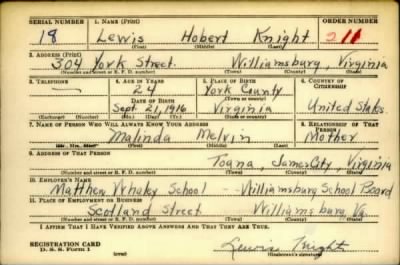 SERIAL NUMBER 1. NAME (Print) ORDER NUMBER
18 Lewis Hobert Knight 211
(First) (Middle) (Last)
2. ADDRESS (Print)
304 York Street. Williamsburg, Virginia
(Number and street or R. F. D. number) (Town) (County) (State)
3. TELEPHONE 4. AGE IN YEARS 5. PLACE OF BIRTH 6. COUNTRY OF CITIZENSHIP
24 York County
DATE OF BIRTH (Town or county)
Sept 21, 1916 Virginia United States
(Exchange) (Number) (Mo.) (Day) (Yr.) (State or country)
7. NAME OF PERSON WHO WILL ALWAYS KNOW YOUR ADDRESS 8. RELATIONSHIP OF THAT PERSON
Malinda Melvin Mother
(Mr., Mrs., Miss) (First) (Middle) (Last)
9. ADDRESS OF THAT PERSON
Toana, James City, Virginia
(Number and street or R. F. D. number) (Town) (County) (State)
10. EMPLOYER'S NAME
Matthew Whaley School - Williamsburg School Board
11. PLACE OF EMPLOYMENT OR BUSINESS
Scotland Street Williamsburg, Va.
(Number and street or R. F. D. number) (Town) (County) (State)
I AFFIRM THAT I HAVE VERIFIED ABOVE ANSWERS AND THAT THEY ARE TRUE.
REGISTRATION CARD
D. S. S. Form 1 Lewis Knight
(Registrant's signature)